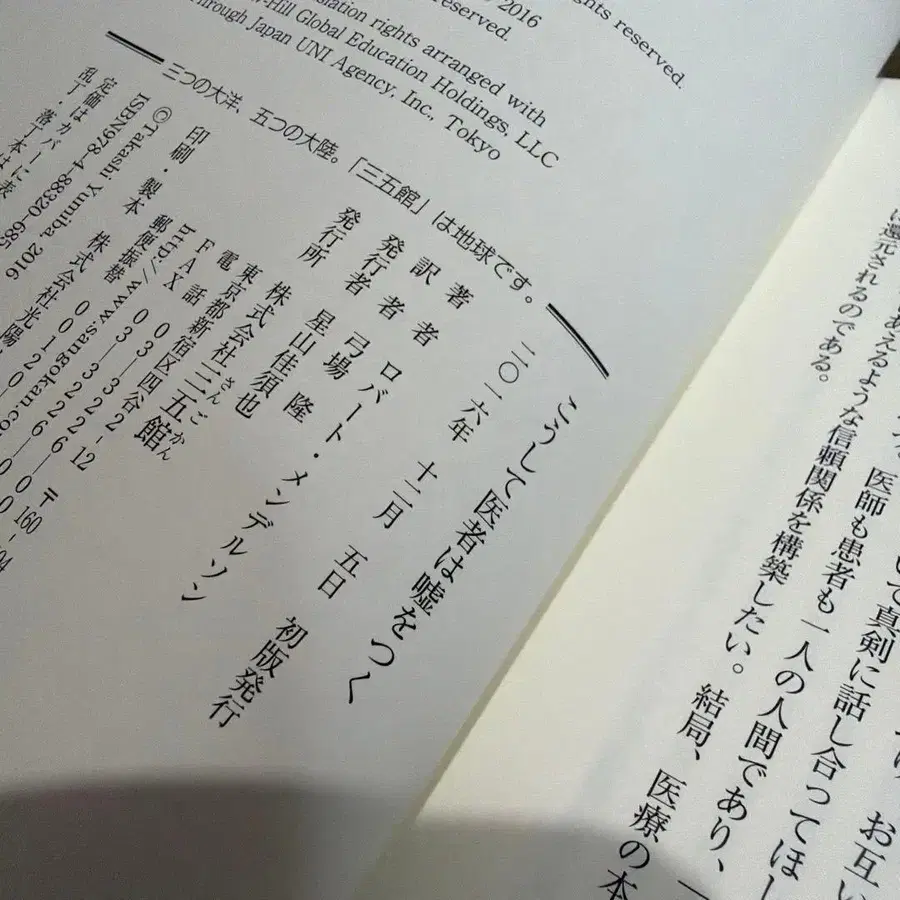 ghts reserved.
2016
reserved.
slation rights arranged with
-Hill Global Education Holdings, LLC
hrough Japan UNI Agency, Inc., Tokyo
三つの大洋、五つの大陸。「三五館」は地球です。
こうして医者は嘘をつく
二〇一六年 十二月 五日 初版発行
著者 ロバート・メンデルソン
訳者 弓場 隆
発行者 星山佳須也
発行所 株式会社三五館
さんごかん
東京都新宿区四谷 2-12 〒160-
電話 03―3226―00
FAX 03―3226―00
http://www.sangokan.co
郵便振替 00120―6―
印刷・製本 株式会社光陽
©Takashi Yumiba, 2016
ISBN978-4-88320-685
定価はカバーに表
乱丁・落丁本は
お互い
いて真剣に話し合ってほし
医師も患者も一人の人間であり、一
あえるような信頼関係を構築したい。結局、医療の本
に還元されるのである。